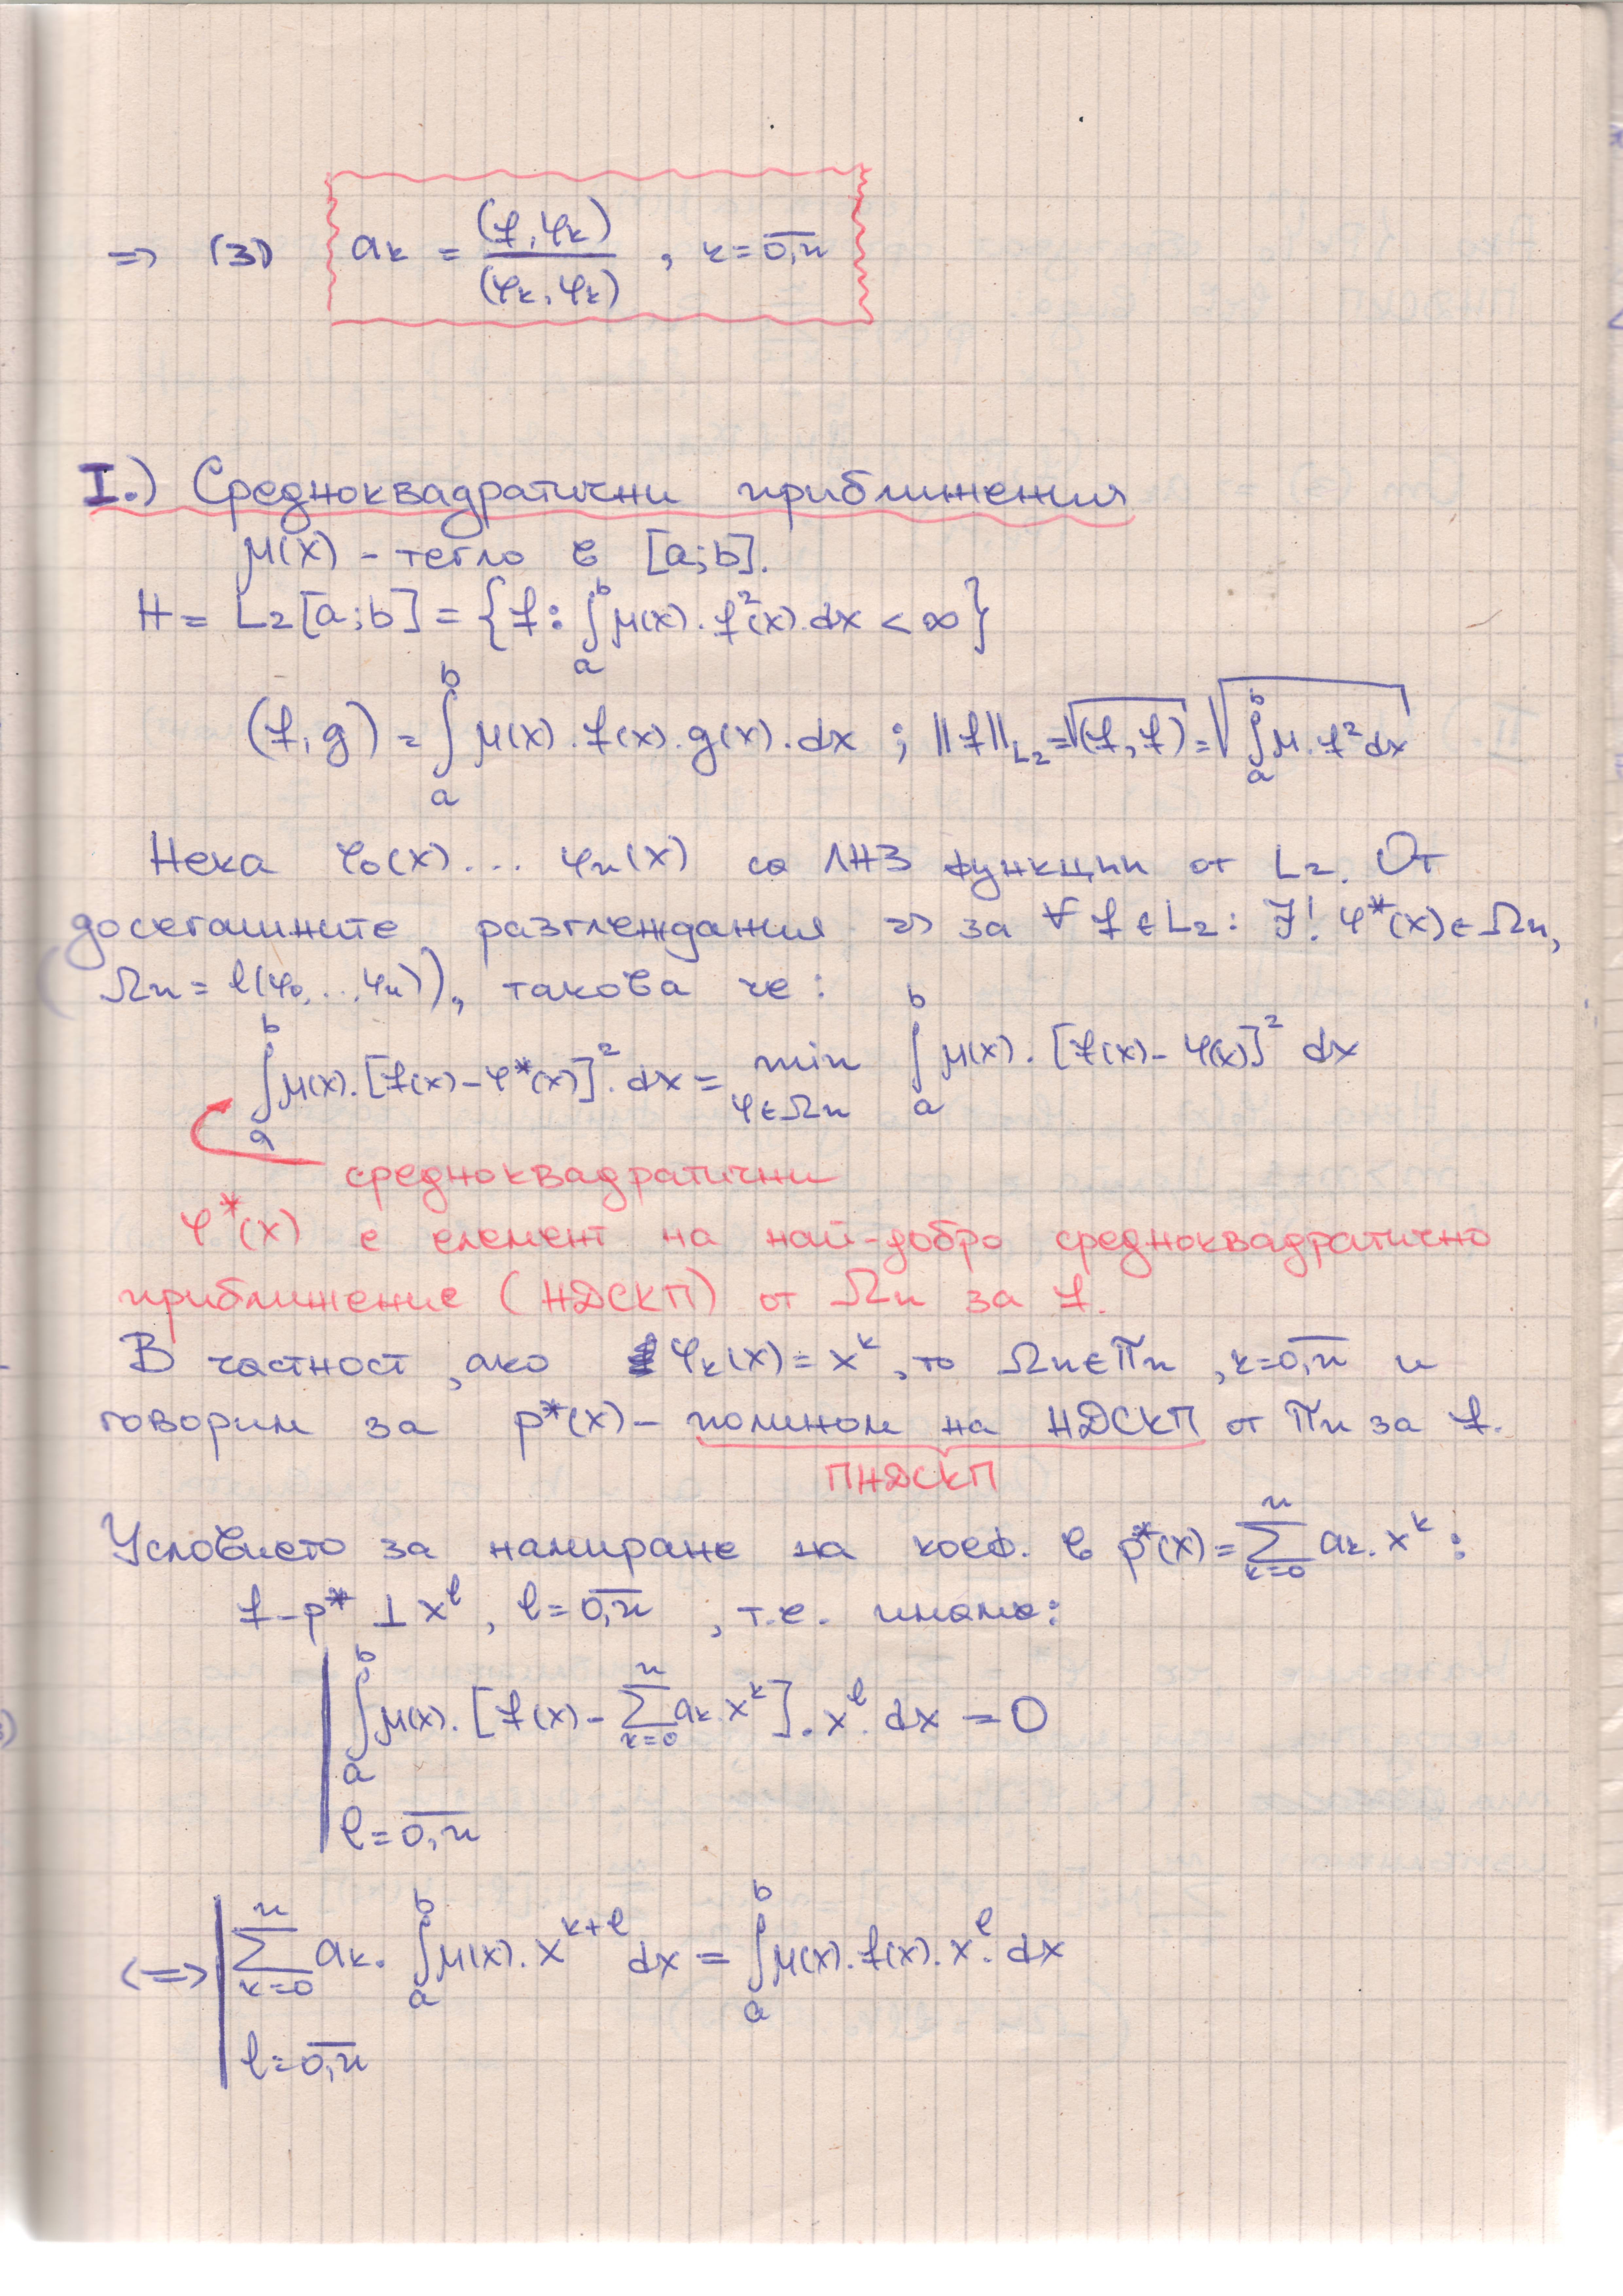 => (3) aₖ = (f, φₖ) / (φₖ, φₖ) , k = 0,n̅
I.) Средноквадратични приближения
μ(x) – тегло в [a; b].
H = L₂[a; b] = {f : ∫ₐᵇ μ(x). f²(x). dx < ∞}
(f, g) = ∫ₐᵇ μ(x). f(x). g(x). dx ; ||f||_L₂ = √(f, f) = √∫ₐᵇ μ. f² dx
Нека φ₀(x) ... φₙ(x) са ЛНЗ функции от L₂. От
досегашните разглеждания => за ∀ f ∈ L₂ : ∃! φ*(x) ∈ Ωₙ,
(Ωₙ = l(φ₀, ..., φₙ)), такова че :
∫ₐᵇ μ(x). [f(x) – φ*(x)]². dx = min_{φ ∈ Ωₙ} ∫ₐᵇ μ(x). [f(x) – φ(x)]² dx
средноквадратични
φ*(x) е елемент на най-добро средноквадратично
приближение (НДСКП) от Ωₙ за f.
В частност, ако φₖ(x) = xᵏ, то Ωₙ ∈ πₙ, k = 0,n̅ и
говорим за p*(x) – полином на НДСКП от πₙ за f.
ПНДСКП
Условието за намиране на коеф. в p*(x) = ∑ₖ₌₀ⁿ aₖ. xᵏ :
f – p* ⊥ xˡ, l = 0,n̅, т.е. имаме:
∫ₐᵇ μ(x). [f(x) – ∑ₖ₌₀ⁿ aₖ xᵏ]. xˡ. dx = 0
l = 0,n̅
<=> ∑ₖ₌₀ⁿ aₖ. ∫ₐᵇ μ(x). xᵏ⁺ˡ dx = ∫ₐᵇ μ(x). f(x). xˡ. dx
l = 0,n̅